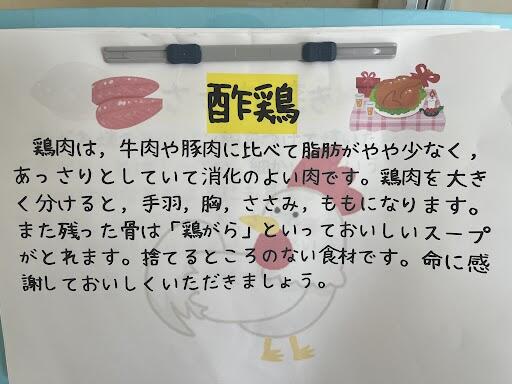 酢鶏
鶏肉は，牛肉や豚肉に比べて脂肪がやや少なく，
あっさりとしていて消化のよい肉です。鶏肉を大き
く分けると，手羽，胸，ささみ，ももになります。
また残った骨は「鶏がら」といっておいしいスープ
がとれます。捨てるところのない食材です。命に感
謝しておいしくいただきましょう。